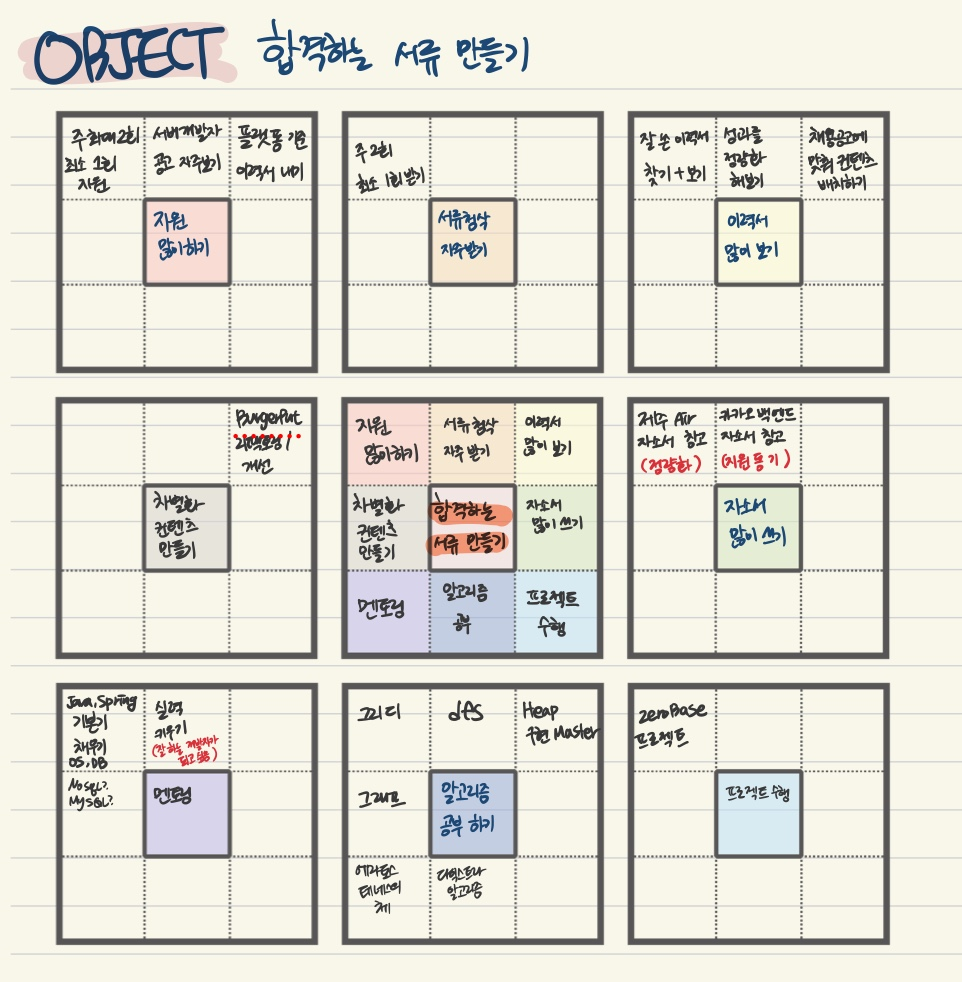 OBJECT 합격하는 서류 만들기
주 최대 2회
최소 1회
지원
서버개발자
공고 자주보기
플랫폼 기준
이력서 내기
지원
많이하기
주 2회
최소 1회 받기
서류첨삭
자주받기
잘 쓴 이력서
찾기 + 보기
성과를
정량화
해보기
채용공고에
맞춰 컨텐츠
배치하기
이력서
많이 보기
BurgerPut
개선
차별화
컨텐츠
만들기
지원
많이하기
서류 첨삭
자주 받기
이력서
많이 보기
차별화
컨텐츠
만들기
합격하는
서류 만들기
자소서
많이 쓰기
멘토링
알고리즘
공부
프로젝트
수행
제주 Air
자소서 참고
(정량화)
카카오 백엔드
자소서 참고
(지원동기)
자소서
많이 쓰기
Java, Spring
기본기
채우기
OS, DB
실력
키우기
(잘 하는 개발자가
되고 싶음)
NoSQL?
MySQL?
멘토링
그리디
dfs
Heap
구현 Master
그래프
알고리즘
공부 하기
에라토스
테네스의
체
다익스트라
알고리즘
zeroBase
프로젝트
프로젝트 수행